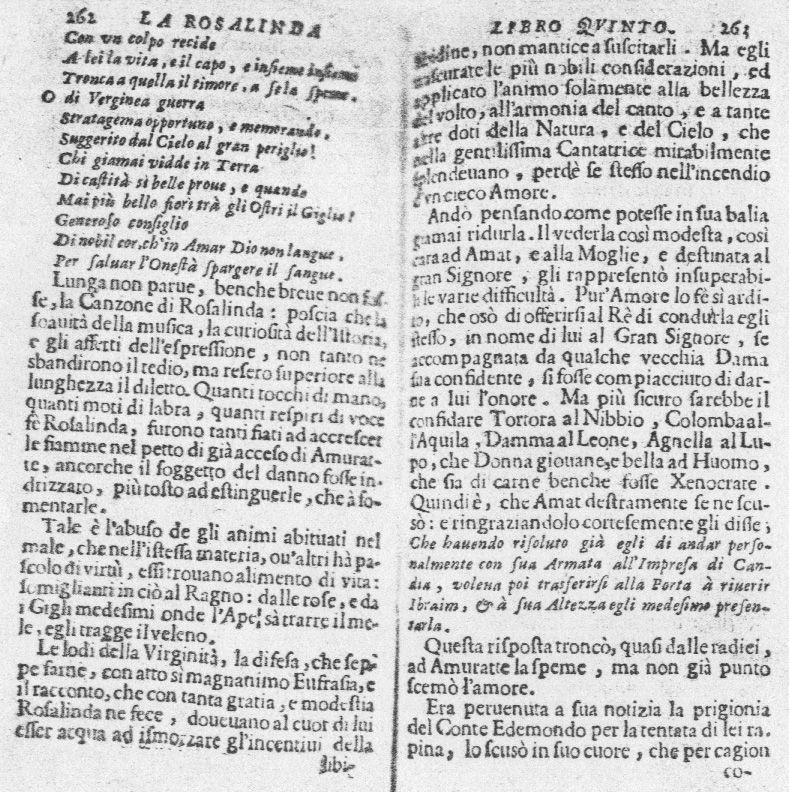 262 LA ROSALINDA
Con vn colpo recide
A lei la vita, e il capo, e insieme insieme
Tronca a quella il timore, a se la speme.
O di Verginea guerra
Stratagema opportuno, e memorando,
Suggerito dal Cielo al gran periglio!
Chi giamai vidde in Terra
Di castità sì belle proue, e quando
Mai più bello fiorì trà gli Ostri il Giglio!
Generoso consiglio
Di nobil cor, ch'in Amar Dio non langue,
Per saluar l'Onestà spargere il sangue.
Lunga non parue, benche breue non fos-
se, la Canzone di Rosalinda: poscia che la
soauità della musica, la curiosità dell'Istoria,
e gli affetti dell'espressione, non tanto ne
sbandirono il tedio, ma resero superiore alla
lunghezza il diletto. Quanti tocchi di mano,
quanti moti di labra, quanti respiri di voce
fè Rosalinda, furono tanti fiati ad accrescer
le fiamme nel petto di già acceso di Amurat-
te, ancorche il soggetto del danno fosse in-
drizzato, più tosto ad estinguerle, che à fo-
mentarle.
Tale è l'abuso de gli animi abituati nel
male, che nell'istessa materia, ou'altri hà pa-
scolo di virtù, essi trouano alimento di vita:
somiglianti in ciò al Ragno: dalle rose, e da
i Gigli medesimi onde l'Ape, sà trarre il me-
le, egli tragge il veleno.
Le lodi della Virginità, la difesa, che seppe
pe farne, con atto sì magnanimo Eufrasia, e
il racconto, che con tanta gratia, e modestia
Rosalinda ne fece, doueuano al cuor di lui
esser acqua ad ismorzare gl'incentiui della
libi-
LIBRO QVINTO. 263
bidine, non mantice a suscitarli. Ma egli
trascurate le più nobili considerazioni, ed
applicato l'animo solamente alla bellezza
del volto, all'armonia del canto, e a tante
altre doti della Natura, e del Cielo, che
nella gentilissima Cantatrice mirabilmente
splendeuano, perdè se stesso nell'incendio
d'vn cieco Amore.
Andò pensando come potesse in sua balia
giamai ridurla. Il vederla così modesta, così
cara ad Amat, e alla Moglie, e destinata al
gran Signore, gli rappresentò insuperabi-
li le varie difficultà. Pur'Amore lo fè sì ardi-
to, che osò di offerirsi al Rè di condurla egli
stesso, in nome di lui al Gran Signore, se
accompagnata da qualche vecchia Dama
sua confidente, si fosse compiacciuto di dar-
ne a lui l'onore. Ma più sicuro sarebbe il
confidare Tortora al Nibbio, Colomba al-
l'Aquila, Damma al Leone, Agnella al Lu-
po, che Donna giouane, e bella ad Huomo,
che sia di carne benche fosse Xenocrate.
Quindi è, che Amat destramente se ne scu-
sò: e ringraziandolo cortesemente gli disse;
Che hauendo risoluto già egli di andar perso-
nalmente con sua Armata all'Impresa di Can-
dia, voleua poi trasferirsi alla Porta à riuerir
Ibraim, & à sua Altezza egli medesimo presen-
tarla.
Questa risposta troncò, quasi dalle radici,
ad Amuratte la speme, ma non già punto
scemò l'amore.
Era peruenuta a sua notizia la prigionia
del Conte Edemondo per la tentata di lei ra-
pina, lo scusò in suo cuore, che per cagion
co-